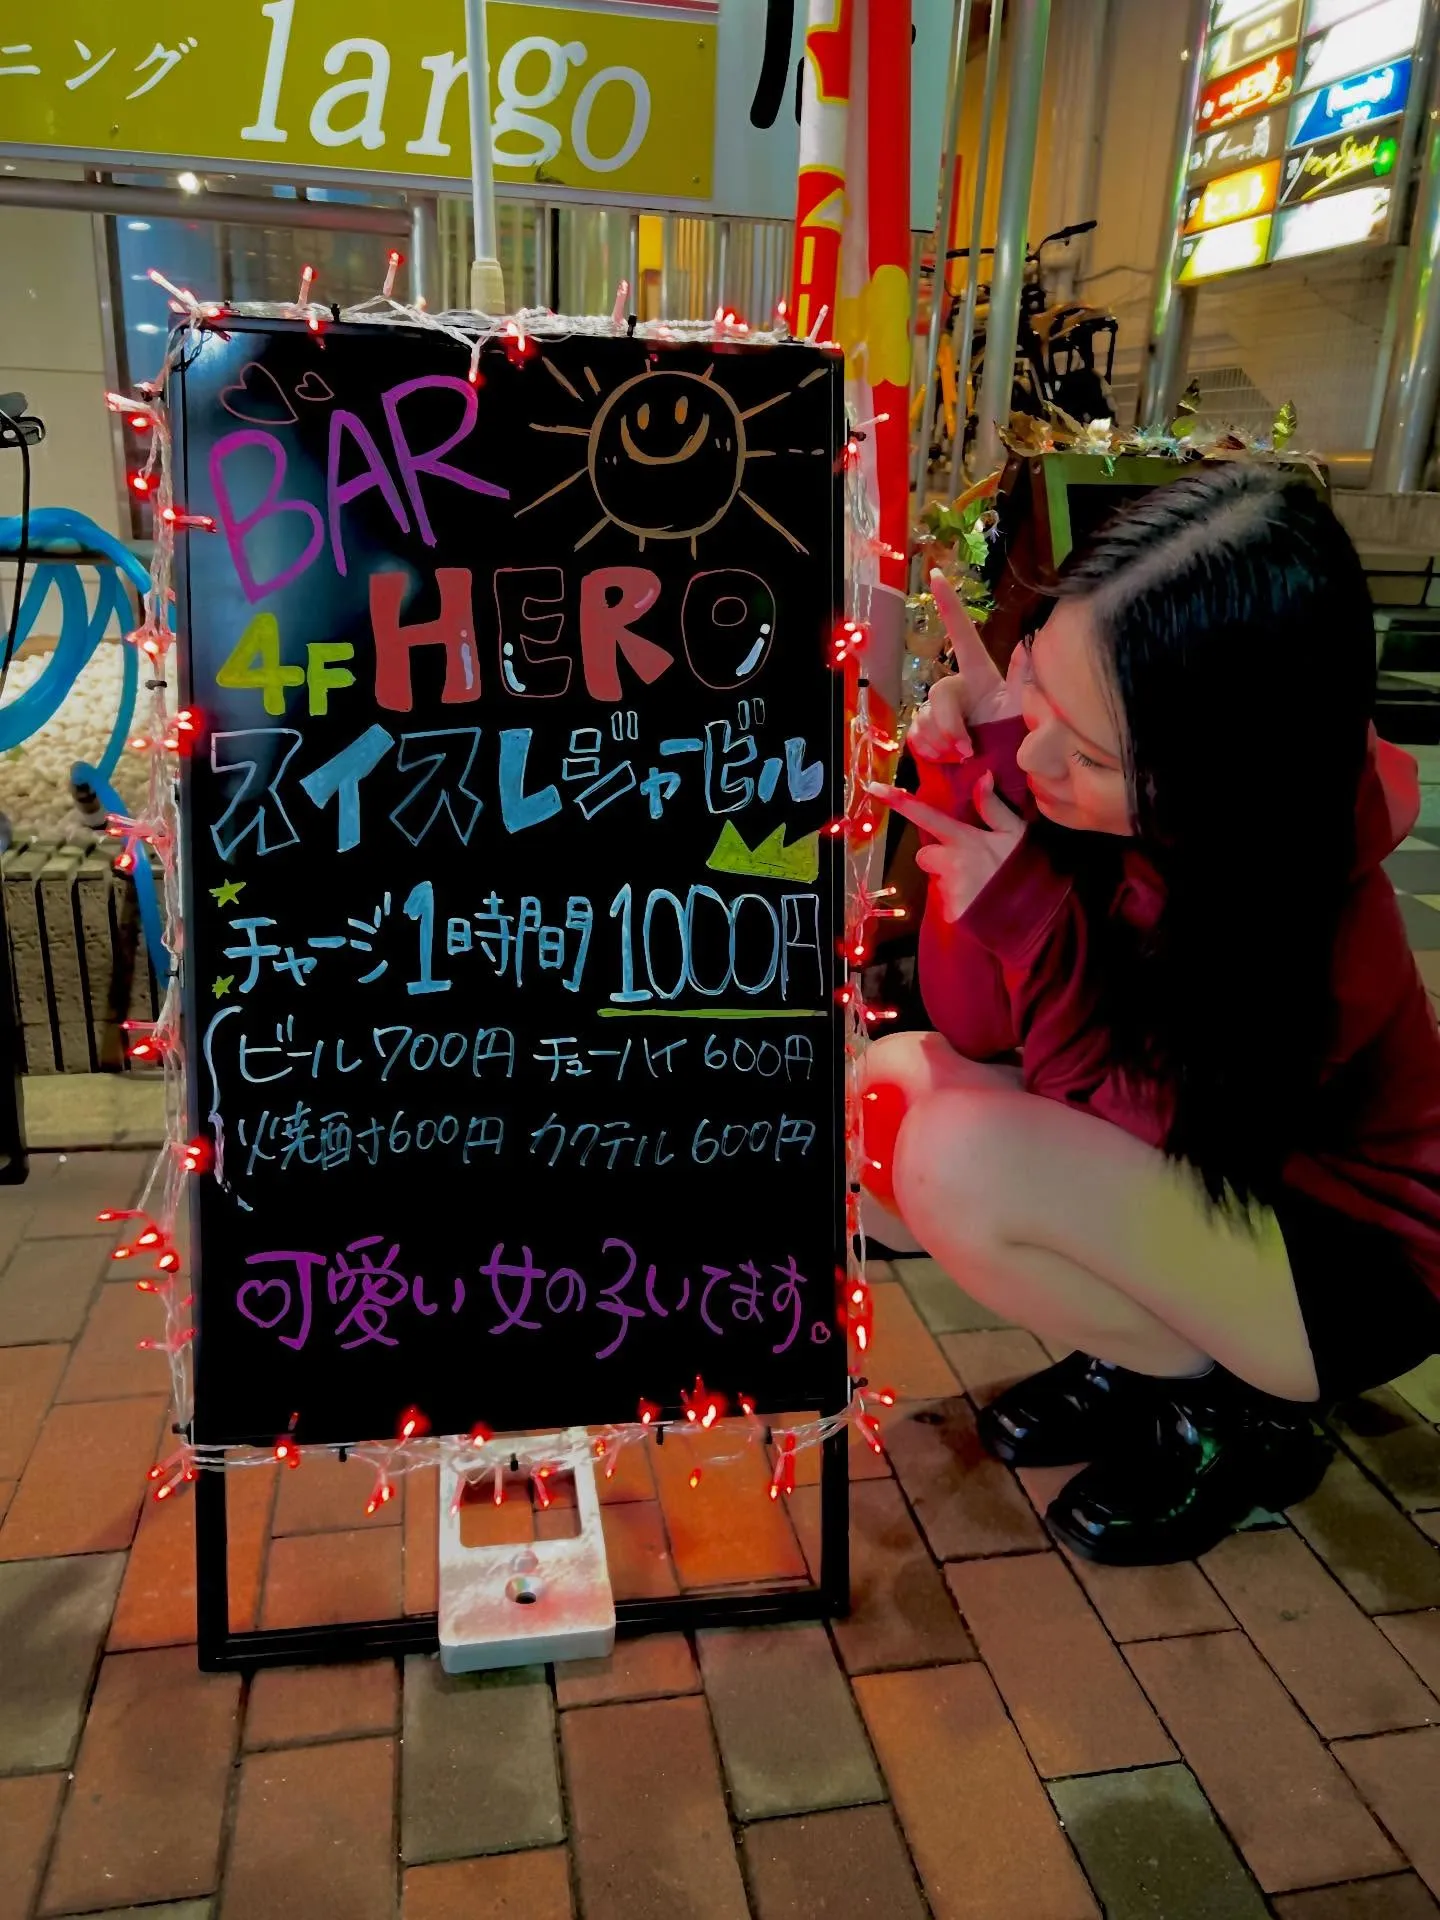 ニング largo
BAR
4F HERO
スイスレジャービル
チャージ1時間 1000円
ビール700円 チューハイ 600円
焼酎600円 カクテル 600円
可愛い女の子いてます。